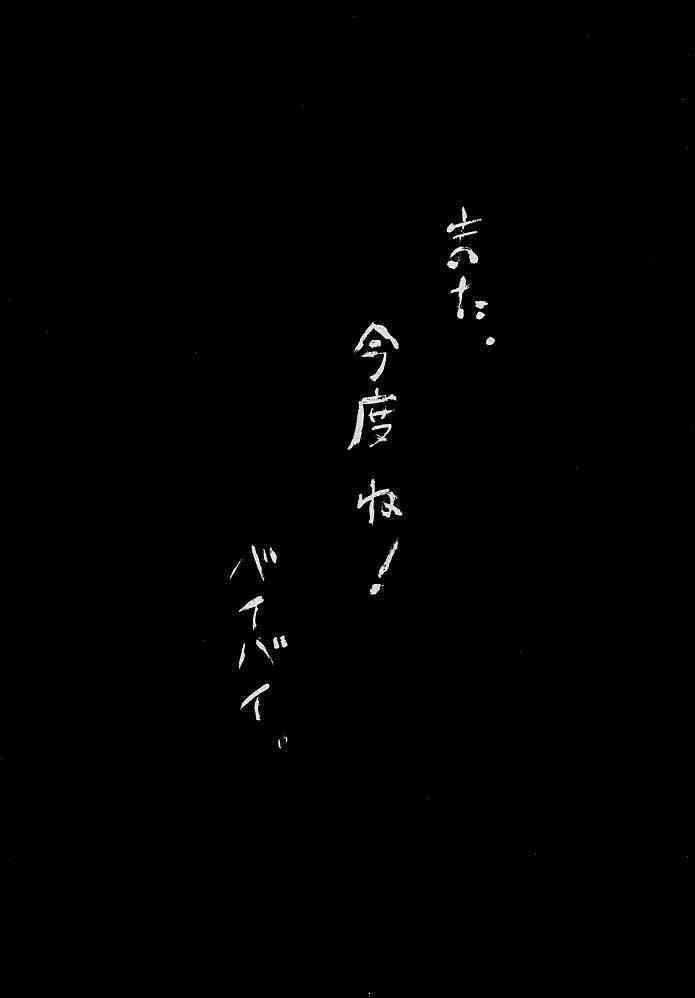 また.
今度ね!
バイバイ。